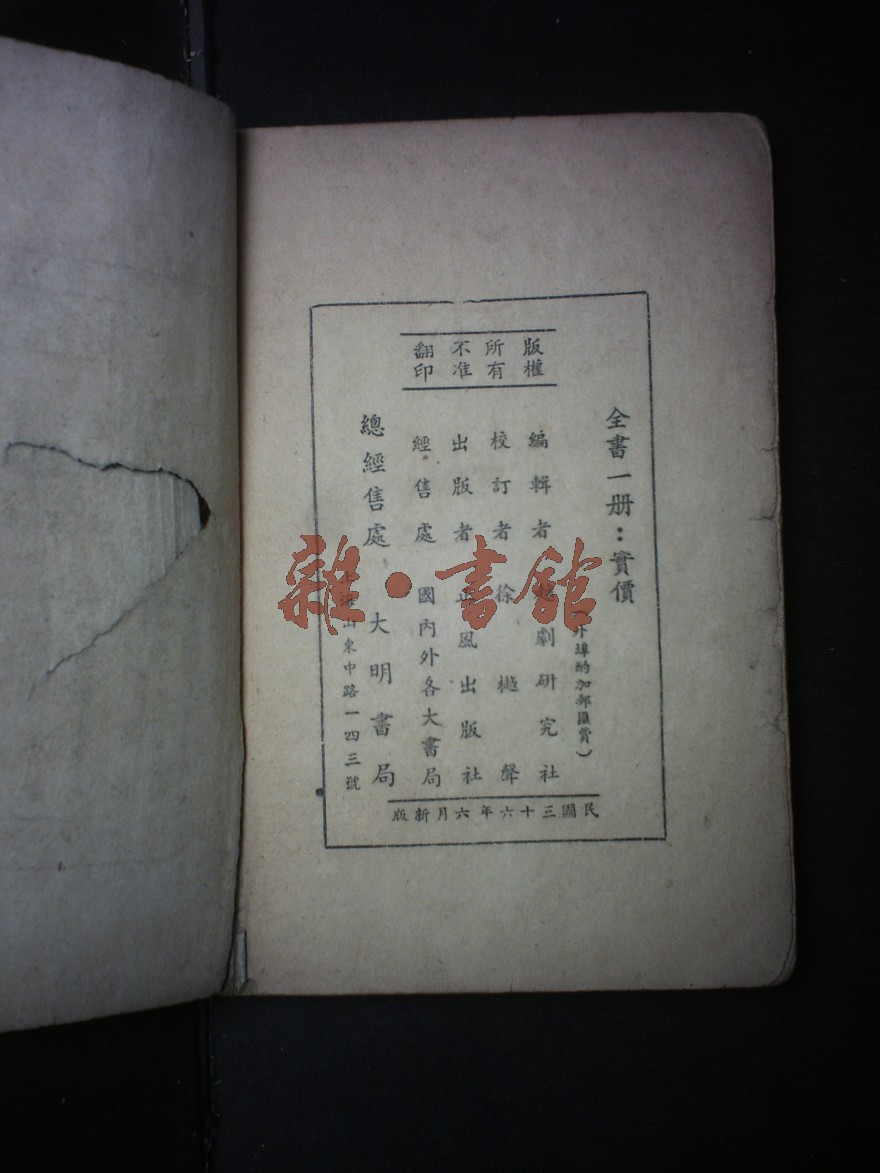 版權所有不准翻印
全書一册：實價
（外埠酌加郵匯費）
編輯者 劇研究社
校訂者 徐樾聲
出版者 正風出版社
經售處 國內外各大書局
總經售處 大明書局
上海山東中路一四三號
民國三十六年六月新版
雜·書館